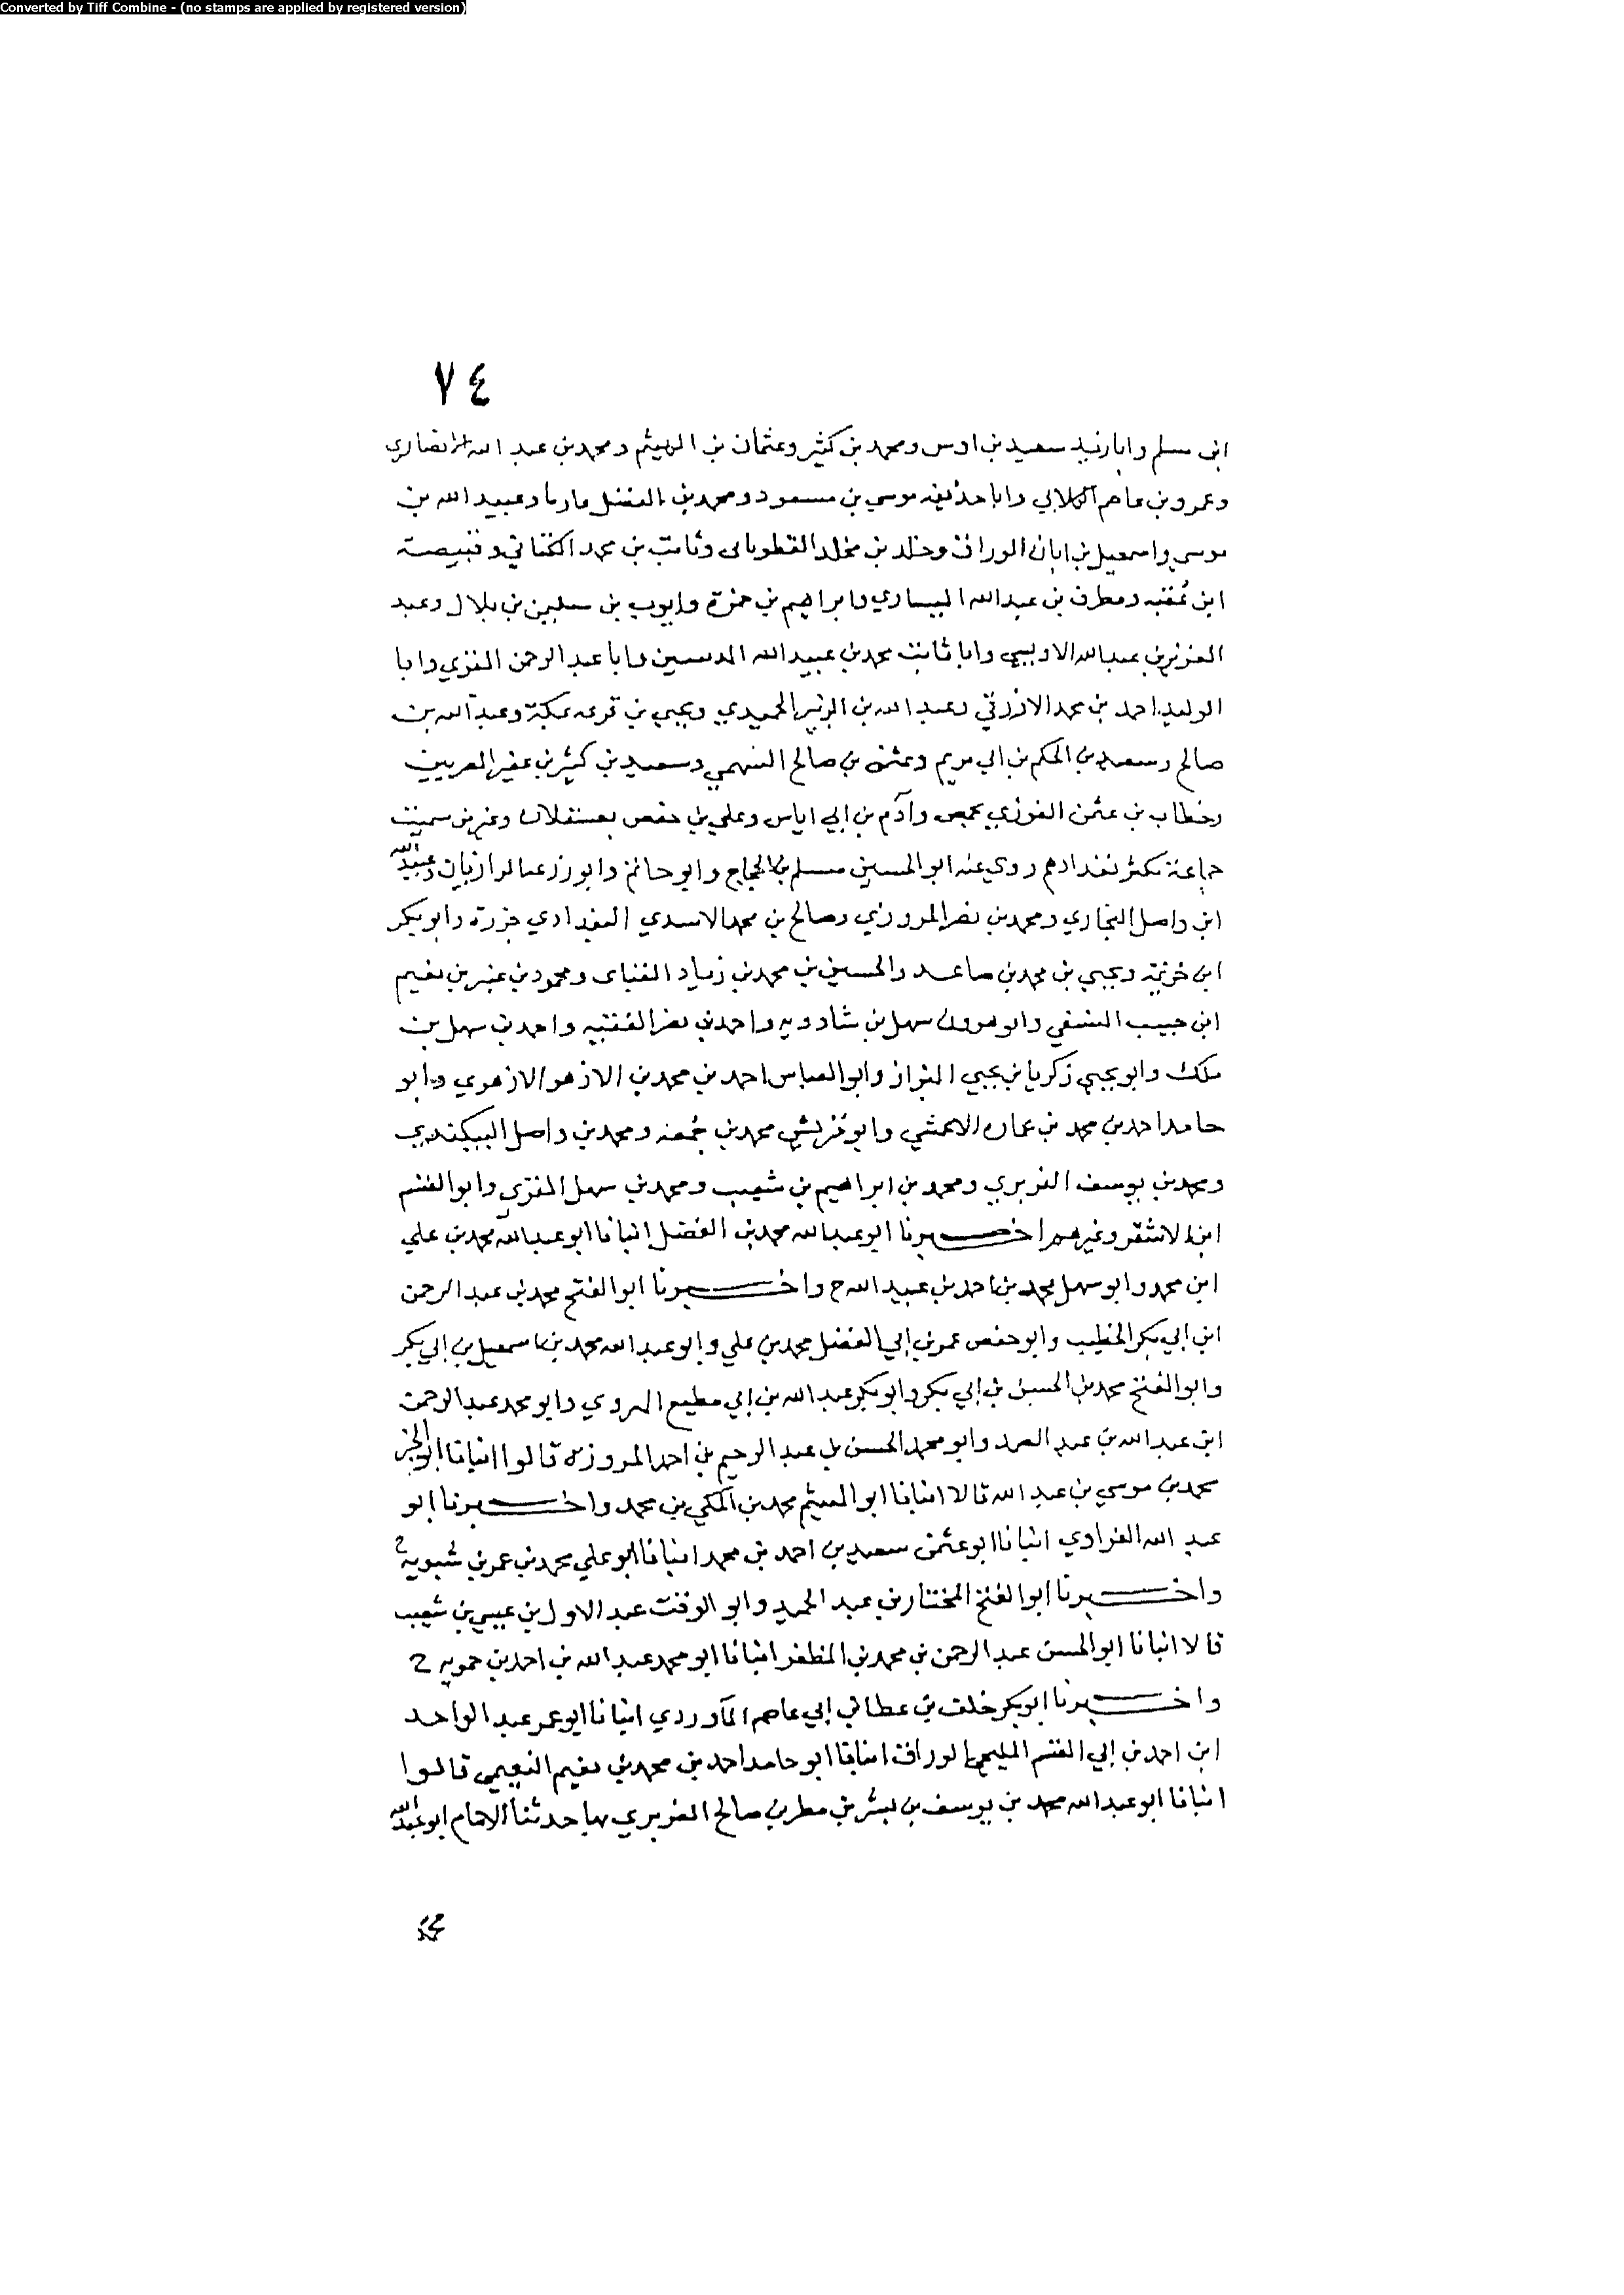 Converted by Tiff Combine - (no stamps are applied by registered version)
٧٤
ابن مسلم وابا زيد سعيد بن اوس ومحمد بن كثير وعثمان بن الهيثم ومحمد بن عبد الله الانصاري
وعمرو بن عاصم الكلابي وابا حذيفه موسي بن مسعود ومحمد بن الفضل عارما وعبيد الله بن
موسي واسمعيل بن ابان الوراق وخلد بن مخلد القطواني وثابت بن محمد الكناني وقبيصة
ابن عُقبه ومطرف بن عبد الله اليساري وابراهيم بن حمزة وايوب بن سليمن بن بلال وعبد
العزيز بن عبد الله الاويسي وابا ثابت محمد بن عبيد الله المدنيين وابا عبد الرحمن المقري وابا
الوليد احمد بن محمد الازرقي وعبد الله بن الزبير الحميدي ويحيي بن قزعه بمكة وعبد الله بن
صالح وسعيد بن الحكم بن ابي مريم وعثمن بن صالح السهمي وسعيد بن كثير بن عفير المصريين
وخطاب بن عثمن الفوزي بحمص وآدم بن ابي اياس وعلي بن حفص بعسقلان وغير من سميت
جماعة يكثر تعدادهم روي عنه ابو الحسين مسلم بن الحجاج وابو حاتم وابو زرعه الرازيان وعبيد الله
ابن واصل البخاري ومحمد بن نصر المروزي وصالح بن محمد الاسدي البغدادي جزرة وابو بكر
ابن خزيمة ويحيي بن محمد بن صاعد والحسين بن محمد بن زياد القباني ومحمود بن عنبر بن نعيم
ابن حبيب النسفي وابو هرون سهل بن شادويه واحمد بن نصر الفقيه واحمد بن سهل بن
ملك وابو يحيي زكريا بن يحيي البزاز وابو العباس احمد بن محمد بن الازهر الازهري وابو
حامد احمد بن محمد بن عماره الاعمشي وابو قريش محمد بن جُمعه ومحمد بن واصل البيكندي
ومحمد بن يوسف الفربري ومحمد بن ابراهيم بن شعيب ومحمد بن سهل المقري وابو القسم
ابن الاشقر وغيرهم اخبرنا ابو عبد الله محمد بن الفضل انبانا ابو عبد الله محمد بن علي
ابن محمد وابو سهل محمد بن احمد بن عبيد الله ح واخبرنا ابو الفتح محمد بن عبد الرحمن
ابن ابي بكر الخطيب وابو حفص عمر بن ابي الفضل محمد بن علي وابو عبد الله محمد بن اسمعيل بن ابي بكر
وابو الفتح محمد بن الحسين بن ابي بكر وابو بكر عبد الله بن ابي مطيع الهروي وابو محمد عبد الرحمن
ابن عبد الله بن عبد الصمد وابو محمد الحسن بن عبد الرحيم بن احمد المروزي قالوا انبانا ابو الخير
محمد بن موسي بن عبد الله قالا انبانا ابو الهيثم محمد بن المكي بن محمد واخبرنا ابو
عبد الله الفراوي انبانا ابو عثمن سعيد بن احمد بن محمد انبانا ابو علي محمد بن عمر بن شبويه ح
واخبرنا ابو الفتح المختار بن عبد الحميد وابو الوقت عبد الاول بن عيسي بن شعيب
قالا انبانا ابو الحسن عبد الرحمن بن محمد بن المظفر انبانا ابو محمد عبد الله بن احمد بن حمويه ح
واخبرنا ابو بكر خلف بن عطا بن ابي عاصم الماوردي انبانا ابو عمر عبد الواحد
ابن احمد بن ابي القسم المليحي الوراق انبانا ابو حامد احمد بن محمد بن نعيم النعيمي قالوا
انبانا ابو عبد الله محمد بن يوسف بن بشر بن مطر بن صالح الفربري بها حدثنا الامام ابو عبد الله
محمد